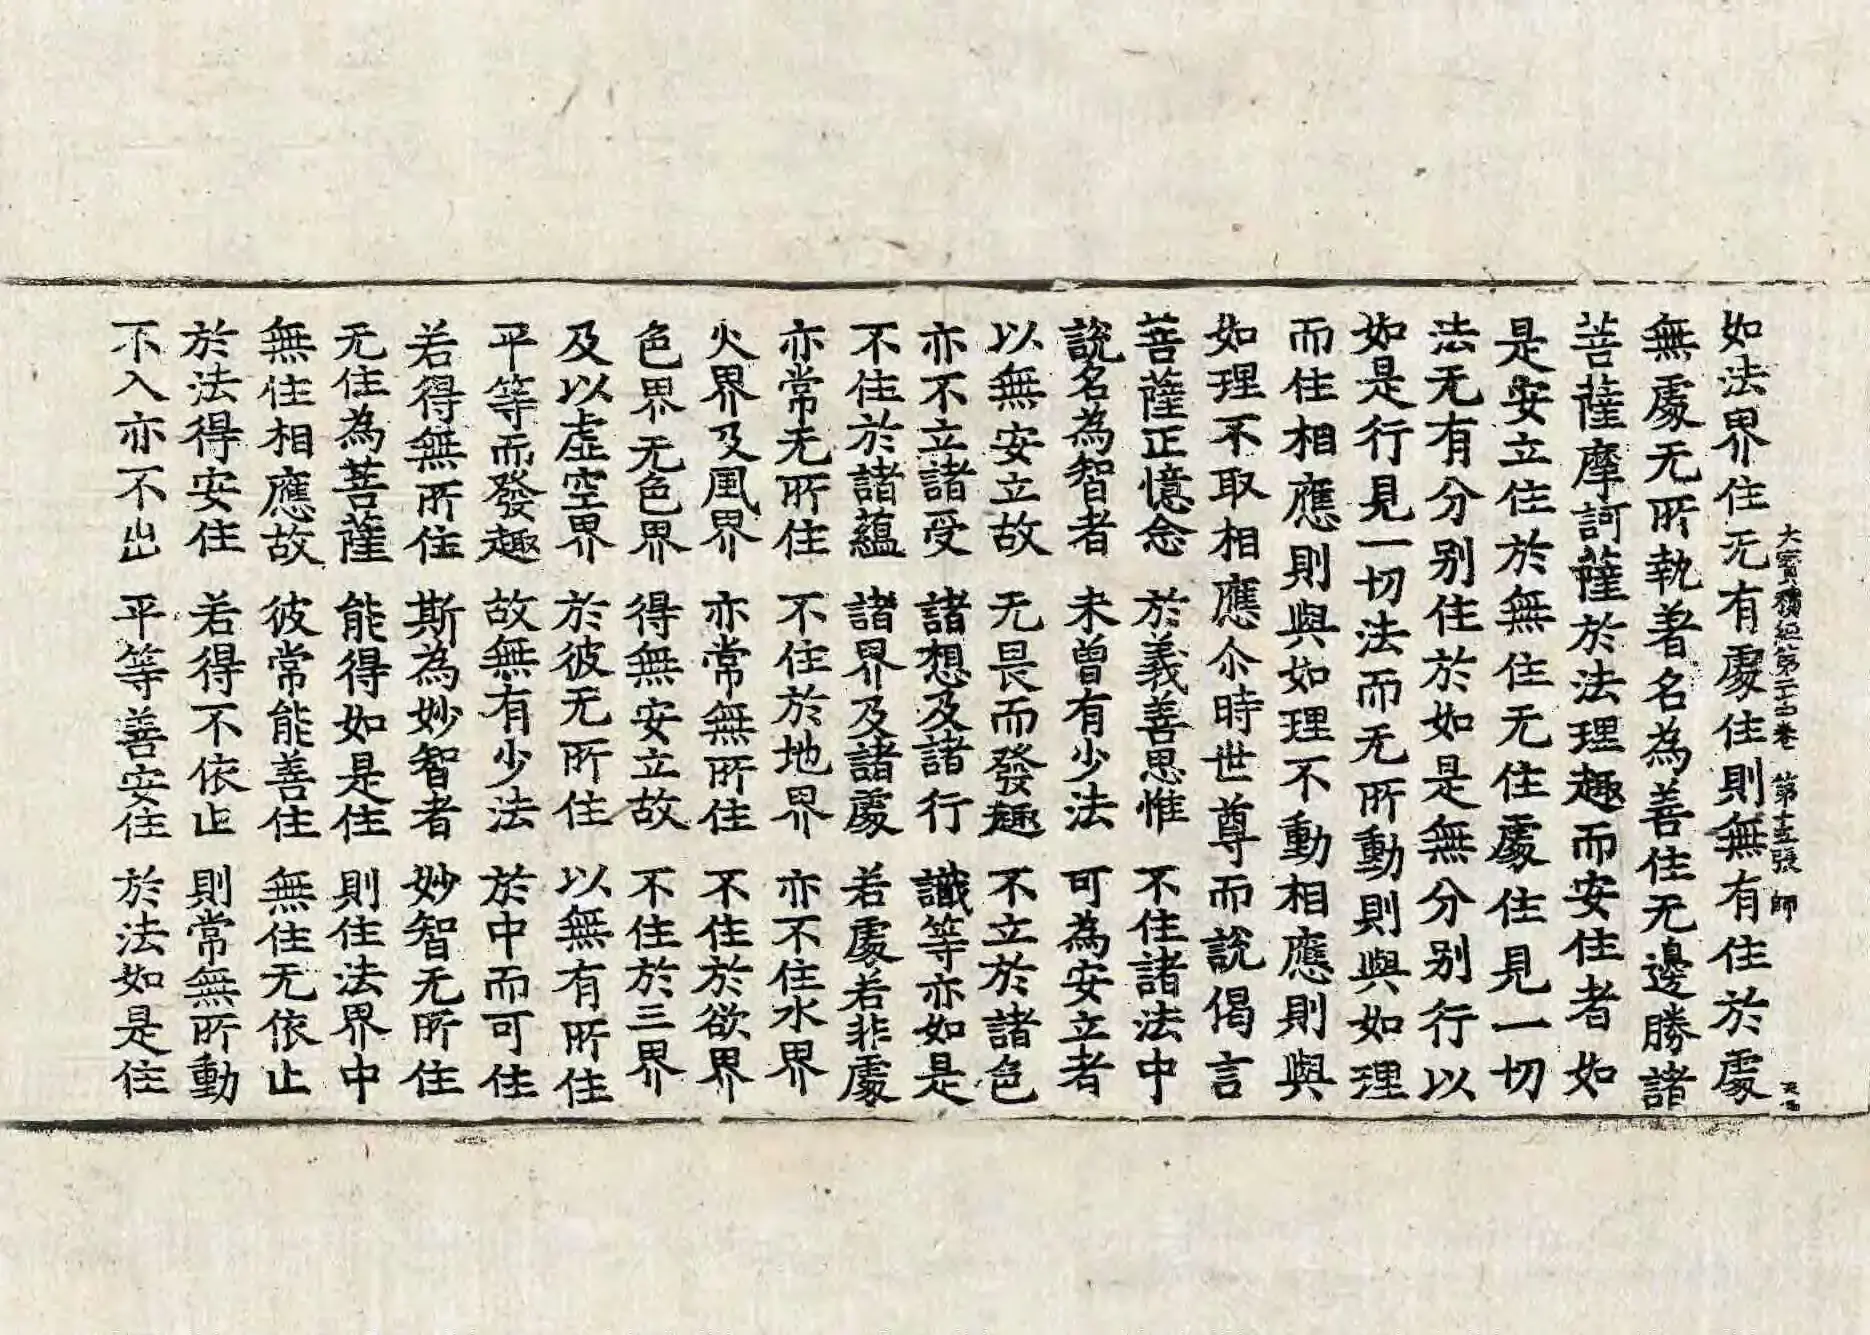 大寶積經第二十四卷 第十五張 師
如法界住无有處住則無有住於處
無處无所執著名為善住无邊勝諸
菩薩摩訶薩於法理趣而安住者如
是安立住於無住无住處住見一切
法无有分别住於如是無分别行以
如是行見一切法而无所動則與如理
而住相應則與如理不動相應則與
如理不取相應尒時世尊而說偈言
菩薩正憶念 於義善思惟 不住諸法中
說名為智者 未曾有少法 可為安立者
以無安立故 无畏而發趣 不立於諸色
亦不立諸受 諸想及諸行 識等亦如是
不住於諸蘊 諸界及諸處 若處若非處
亦常无所住 不住於地界 亦不住水界
火界及風界 亦常無所住 不住於欲界
色界无色界 得無安立故 不住於三界
及以虛空界 於彼无所住 以無有所住
平等而發趣 故無有少法 於中而可住
若得無所住 斯為妙智者 妙智无所住
无住為菩薩 能得如是住 則住法界中
無住相應故 彼常能善住 無住无依止
於法得安住 若得不依止 則常無所動
不入亦不出 平等善安住 於法如是住